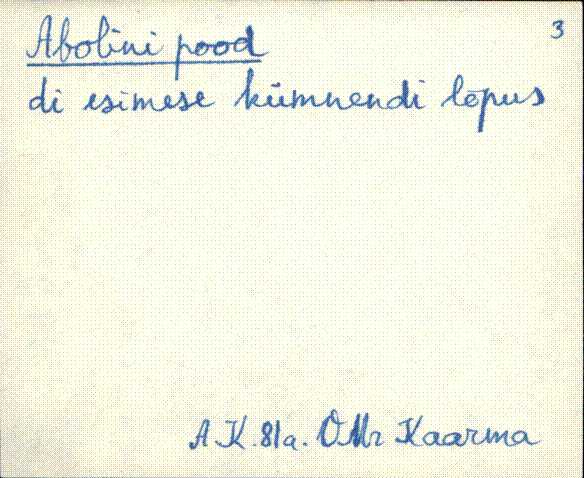 Abolini pood
3
di esimese kümnendi lõpus
A.K. 81a. O Mr Kaarma